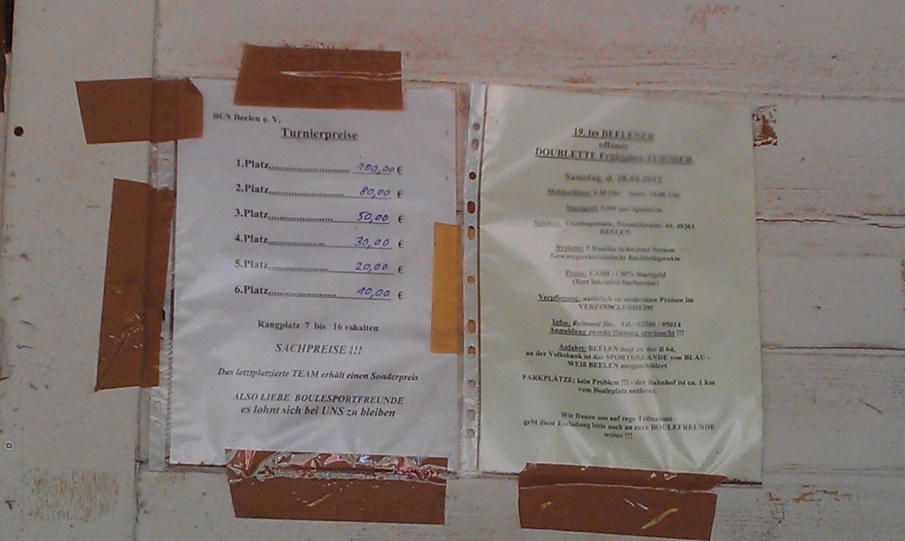 BCS Beelen e. V.
Turnierpreise
1.Platz............................ 100,00 €
2.Platz............................ 80,00 €
3.Platz...................... 50,00 €
4.Platz...................... 30,00 €
5.Platz...................... 20,00 €
6.Platz............................ 10,00 €
Rangplatz 7 bis 16 erhalten
SACHPREISE !!!
Das letztplatzierte TEAM erhält einen Sonderpreis
ALSO LIEBE BOULESPORTFREUNDE
es lohnt sich bei UNS zu bleiben
19. tes BEELENER
offenes
DOUBLETTE Frühjahrs TURNIER
Samstag, d. 28.04.2012
BEELEN
System:
Preise: CASH - 100% Startgeld
Verpflegung: natürlich zu moderaten Preisen im
VEREINSCLUBHEIM
Infos: Tel. 02586 / 95014
Anmeldung zwecks Planung erwünscht !!!
Anfahrt: BEELEN liegt an der B 64,
an der Volksbank ist das SPORTGELÄNDE von BLAU -
WEIß BEELEN ausgeschildert
PARKPLÄTZE: kein Problem !!! - der Bahnhof ist ca. 1 km
vom Bouleplatz entfernt.
Wir freuen uns auf rege Teilnahme -
gebt diese Einladung bitte auch an eure BOULEFREUNDE
weiter !!!